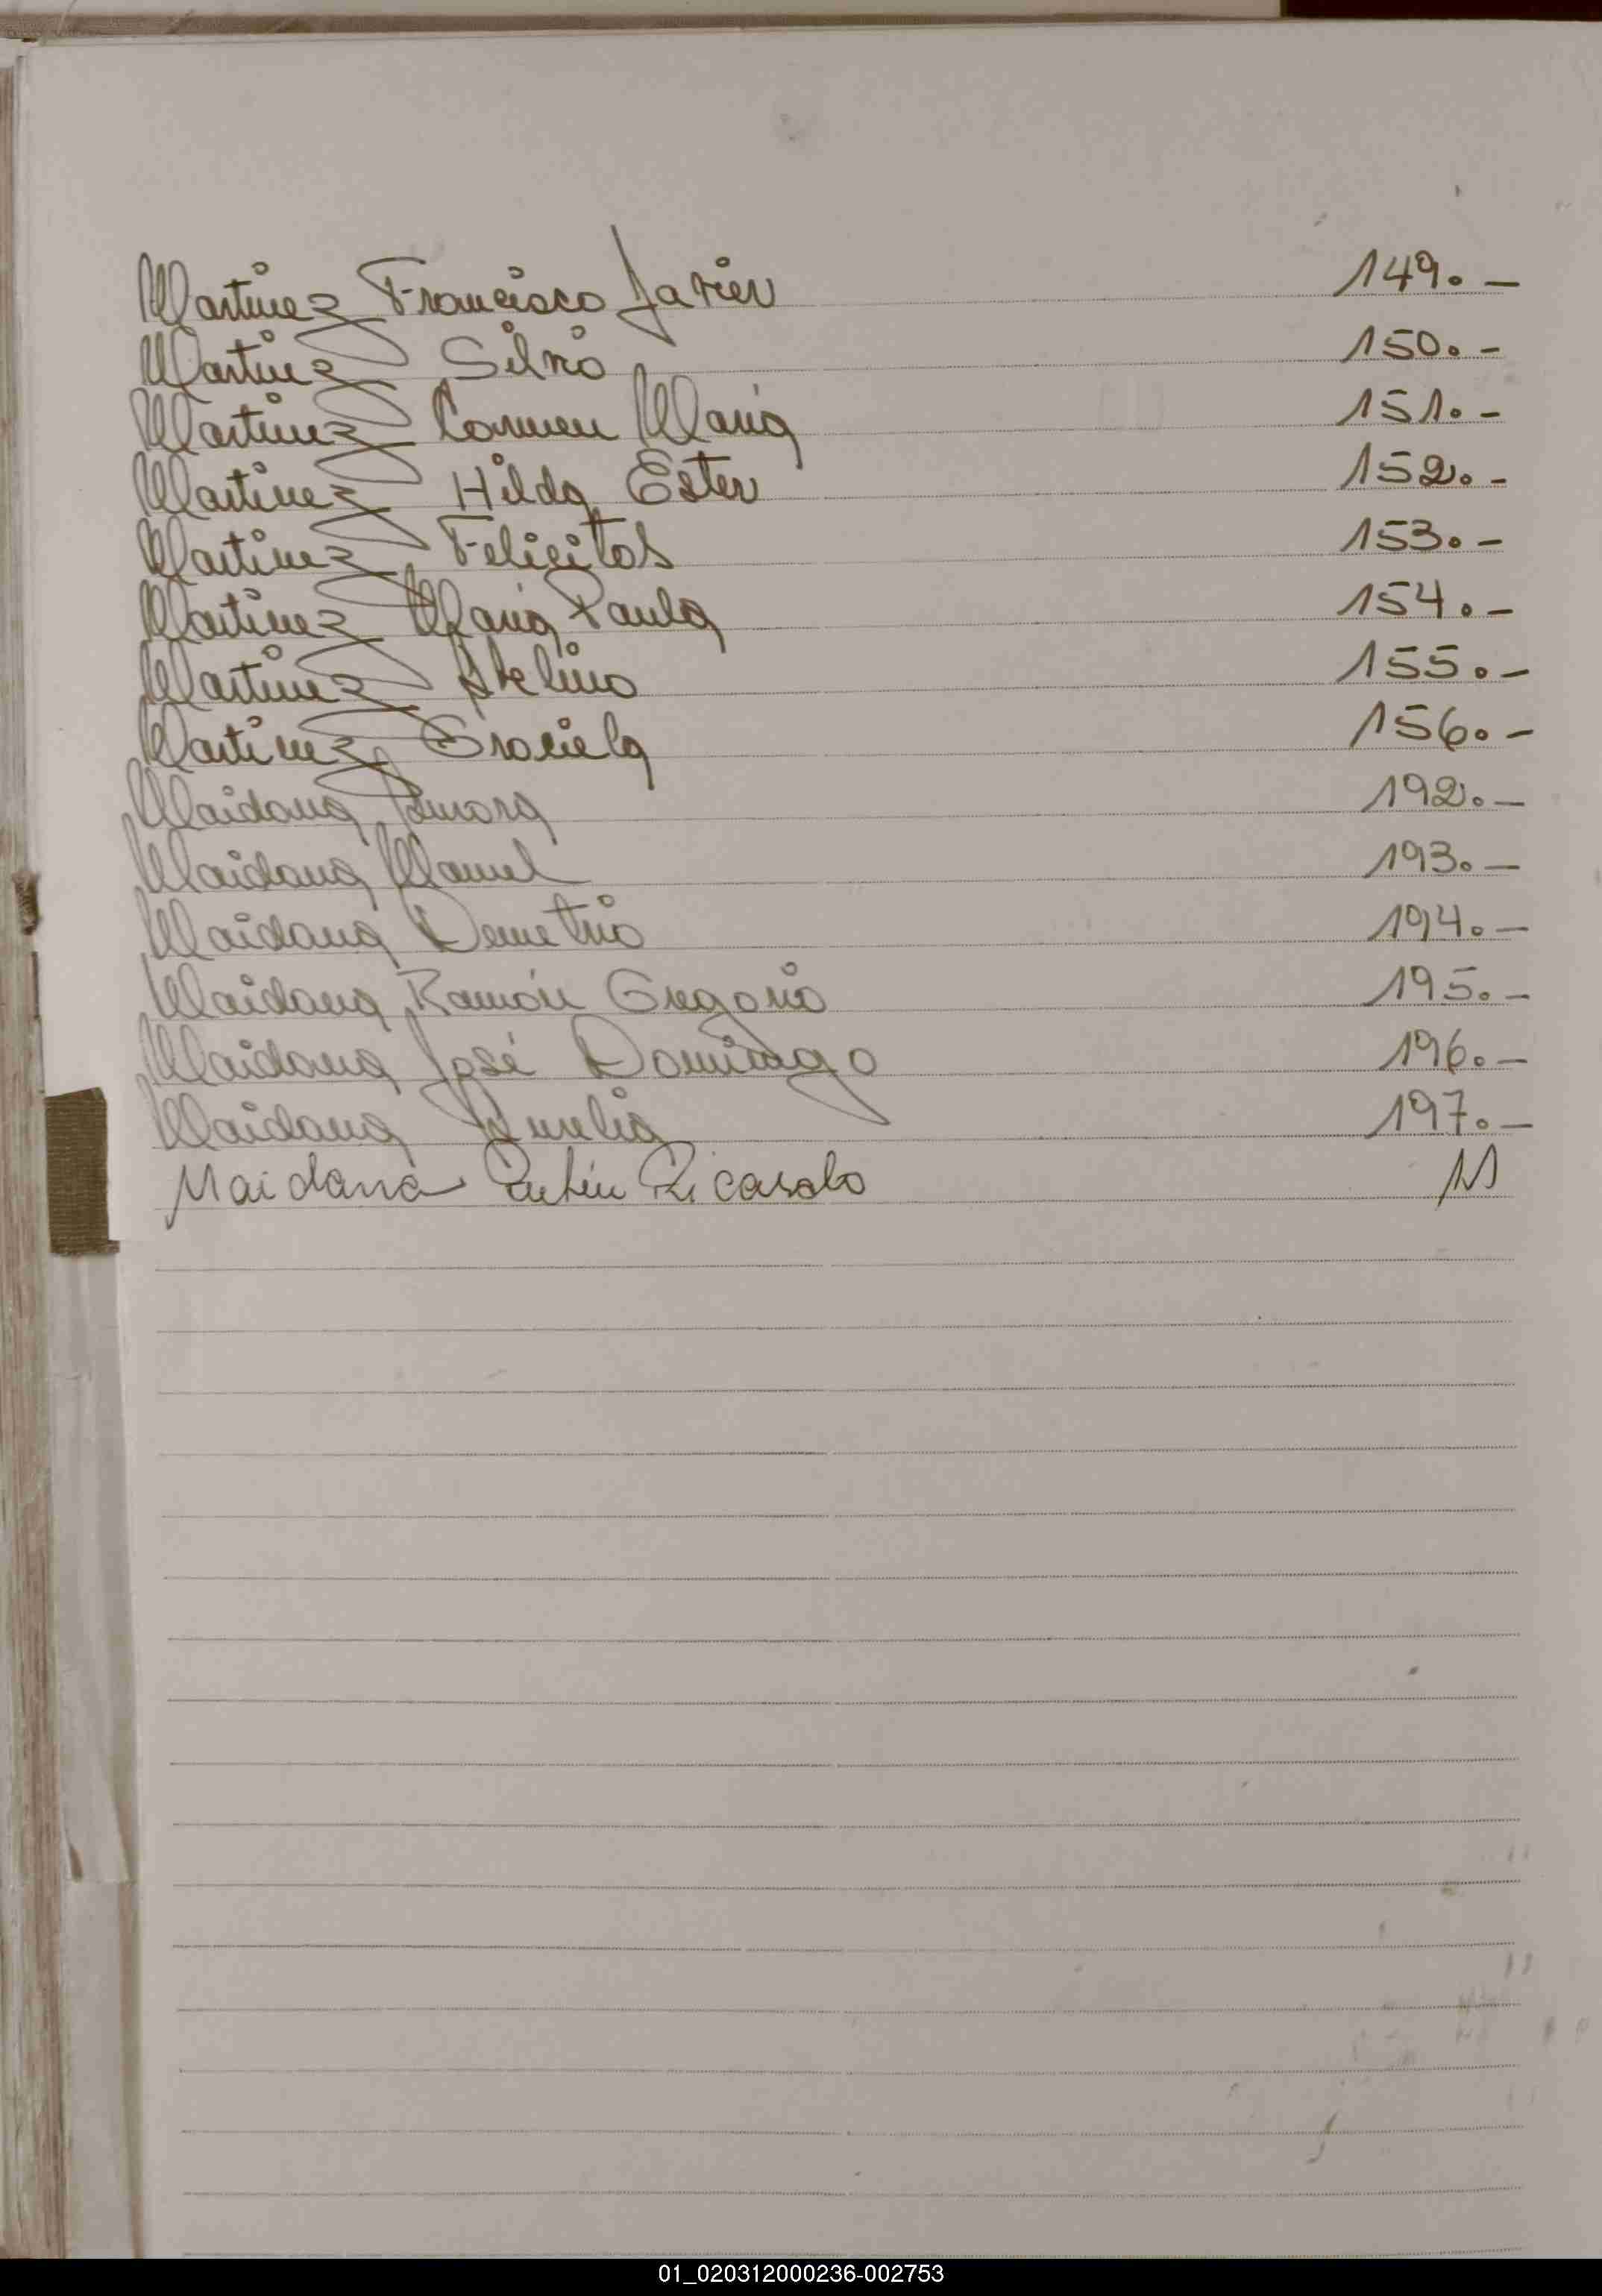 Martinez Francisco Javier 149.-
Martinez Silvio 150.-
Martinez Carmen Maria 151.-
Martinez Hilda Ester 152.-
Martinez Felicitas 153.-
Martinez Maria Paula 154.-
Martinez Avelino 155.-
Martinez Graciela 156.-
Maidana Ramona 192.-
Maidana Manuel 193.-
Maidana Demetrio 194.-
Maidana Ramón Gregorio 195.-
Maidana José Domingo 196.-
Maidana 197.-
Maidana Rubén Ricardo
01_020312000236-002753